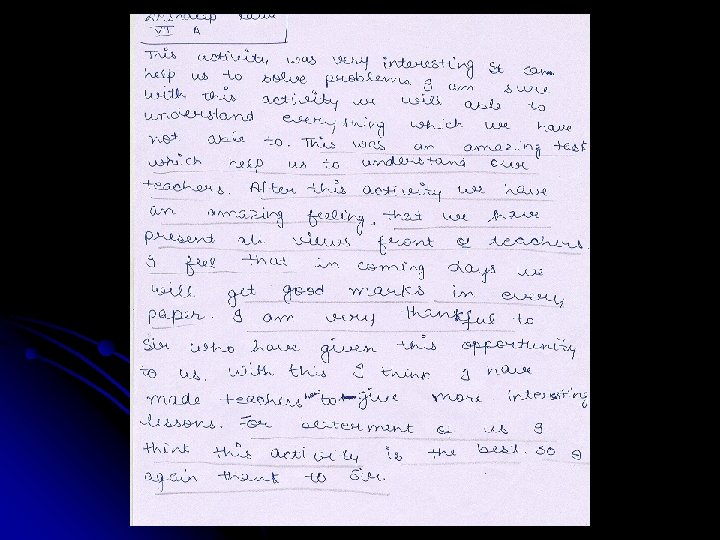 VI A
This activity was very interesting it can
help us to solve problems I am sure
with this activity we will able to
understand everything which we have
not able to. This was an amazing test
which help us to understand our
teachers. After this activity we have
an amazing feeling, that we have
present all views front of teachers.
I feel that in coming days we
will get good marks in every
paper. I am very thankful to
Sir who have given this opportunity
to us. With this I think I have
made teachers to give more interesting
lessons. For of us I
think this activity is the best. so I
again thank to Sir.